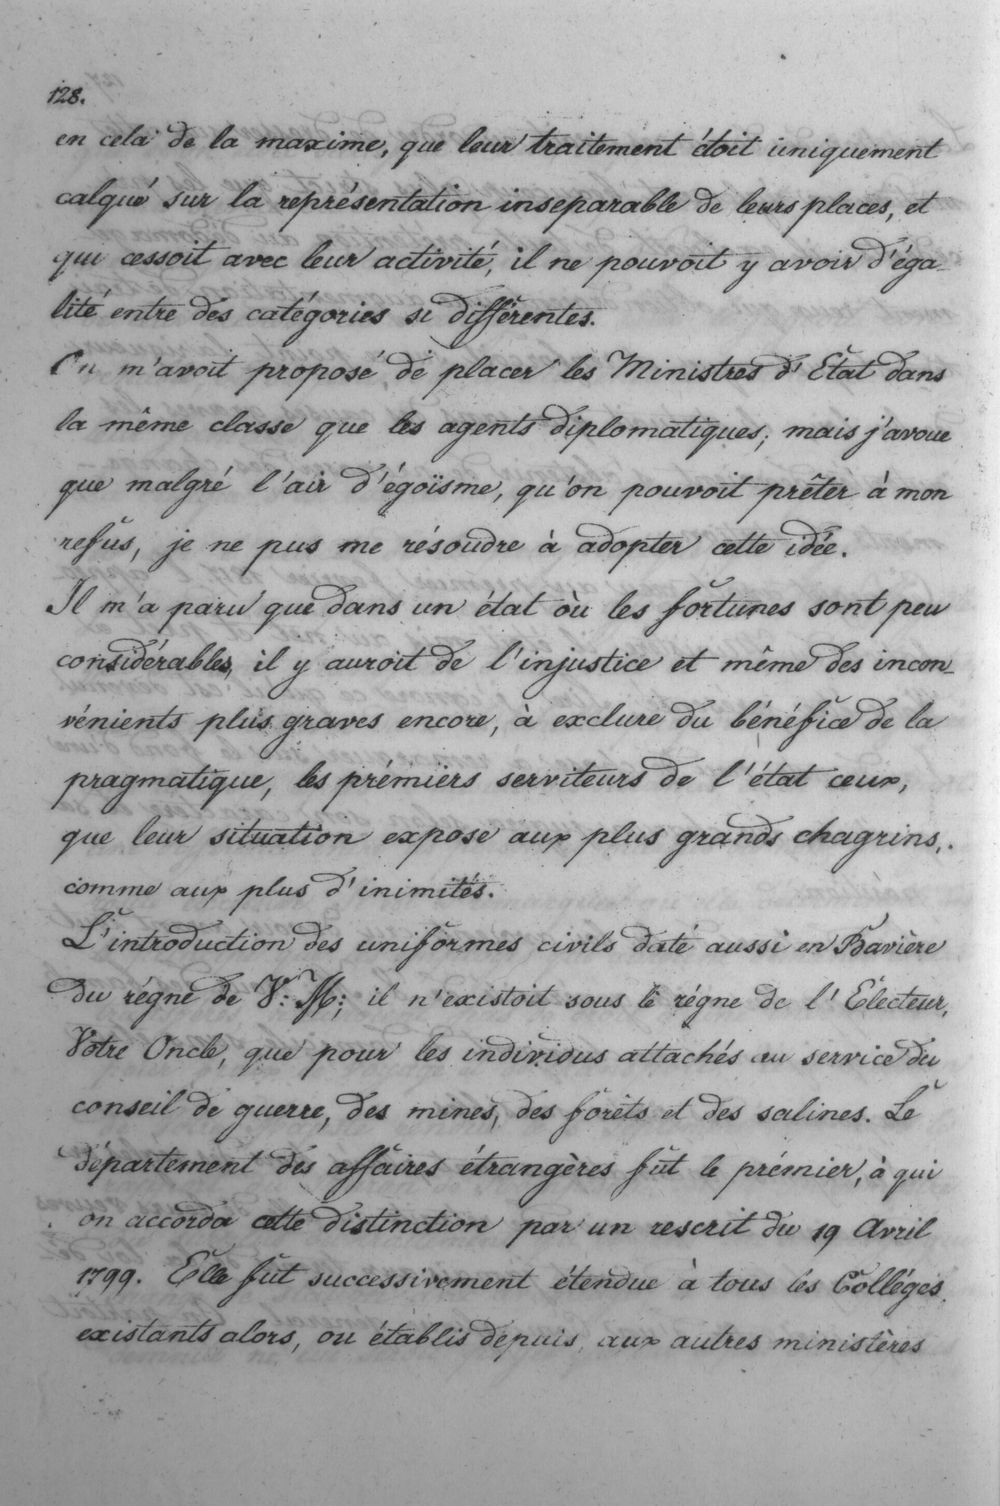 128.
en cela de la maxime, que leur traitement étoit uniquement
calqué sur la représentation inseparable de leurs places, et
qui cessoit avec leur activité, il ne pouvoit y avoir d'éga-
lité entre des catégories si différentes.
On m'avoit proposé de placer les Ministres d'Etat dans
la même classe que les agents diplomatiques; mais j'avoue
que malgré l'air d'égoïsme, qu'on pouvoit prêter à mon
refus, je ne pus me résoudre à adopter cette idée.
Il m'a paru que dans un état où les fortunes sont peu
considérables, il y auroit de l'injustice et même des incon-
vénients plus graves encore, à exclure du bénéfice de la
pragmatique, les prémiers serviteurs de l'état ceux,
que leur situation expose aux plus grands chagrins,
comme aux plus d'inimités.
L'introduction des uniformes civils daté aussi en Bavière
du régne de V: M; il n'existoit sous le régne de l'Électeur,
Votre Oncle, que pour les individus attachés au service du
conseil de guerre, des mines, des forêts et des salines. Le
département des affaires étrangères fut le prémier, à qui
on accorda cette distinction par un rescrit du 19 Avril
1799. Elle fut successivement étendue à tous les Colléges
existants alors, ou établis depuis, aux autres ministères